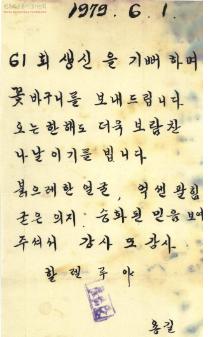 1979. 6. 1.
61회 생신을 기뻐하며
꽃바구니를 보내드립니다
오는 한해도 더욱 보람찬
나날이기를 빕니다
붉으레한 얼굴, 억센 팔힘
굳은 의지. 승화된 믿음 보여
주셔서 감사 또 감사
할렐루야
용길